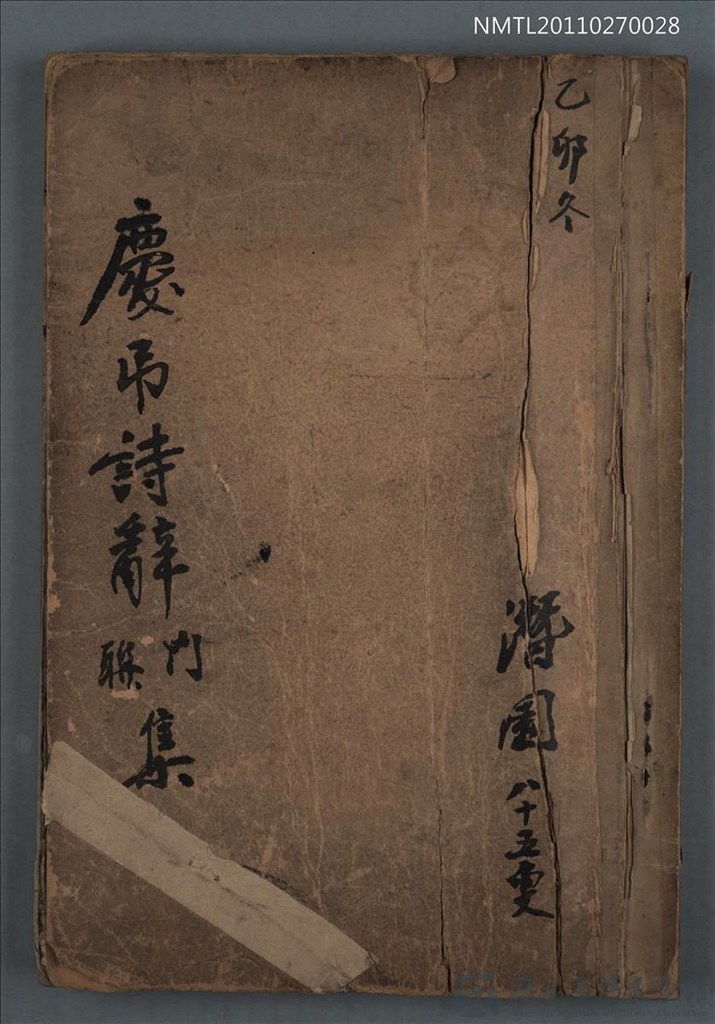 NMTL20110270028
乙卯冬
潛園 八十五叟
慶吊詩辭門聯集